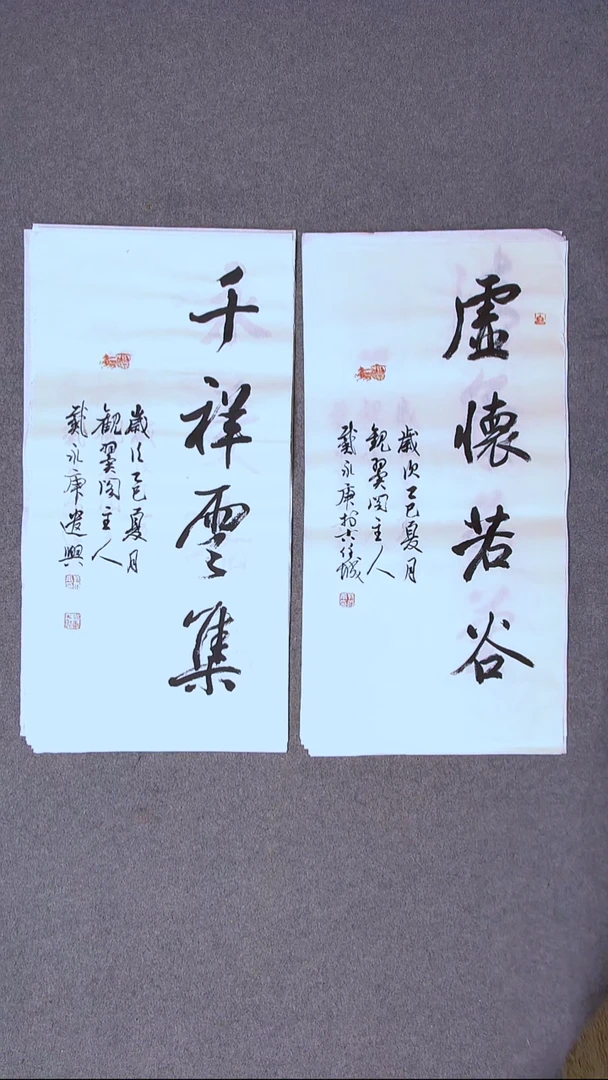 虛懷若谷
歲次乙巳夏月
觀翼閣主人
戴永庚於六任城
千祥雲集
歲次乙巳夏月
觀翼閣主人
戴永庚遣興